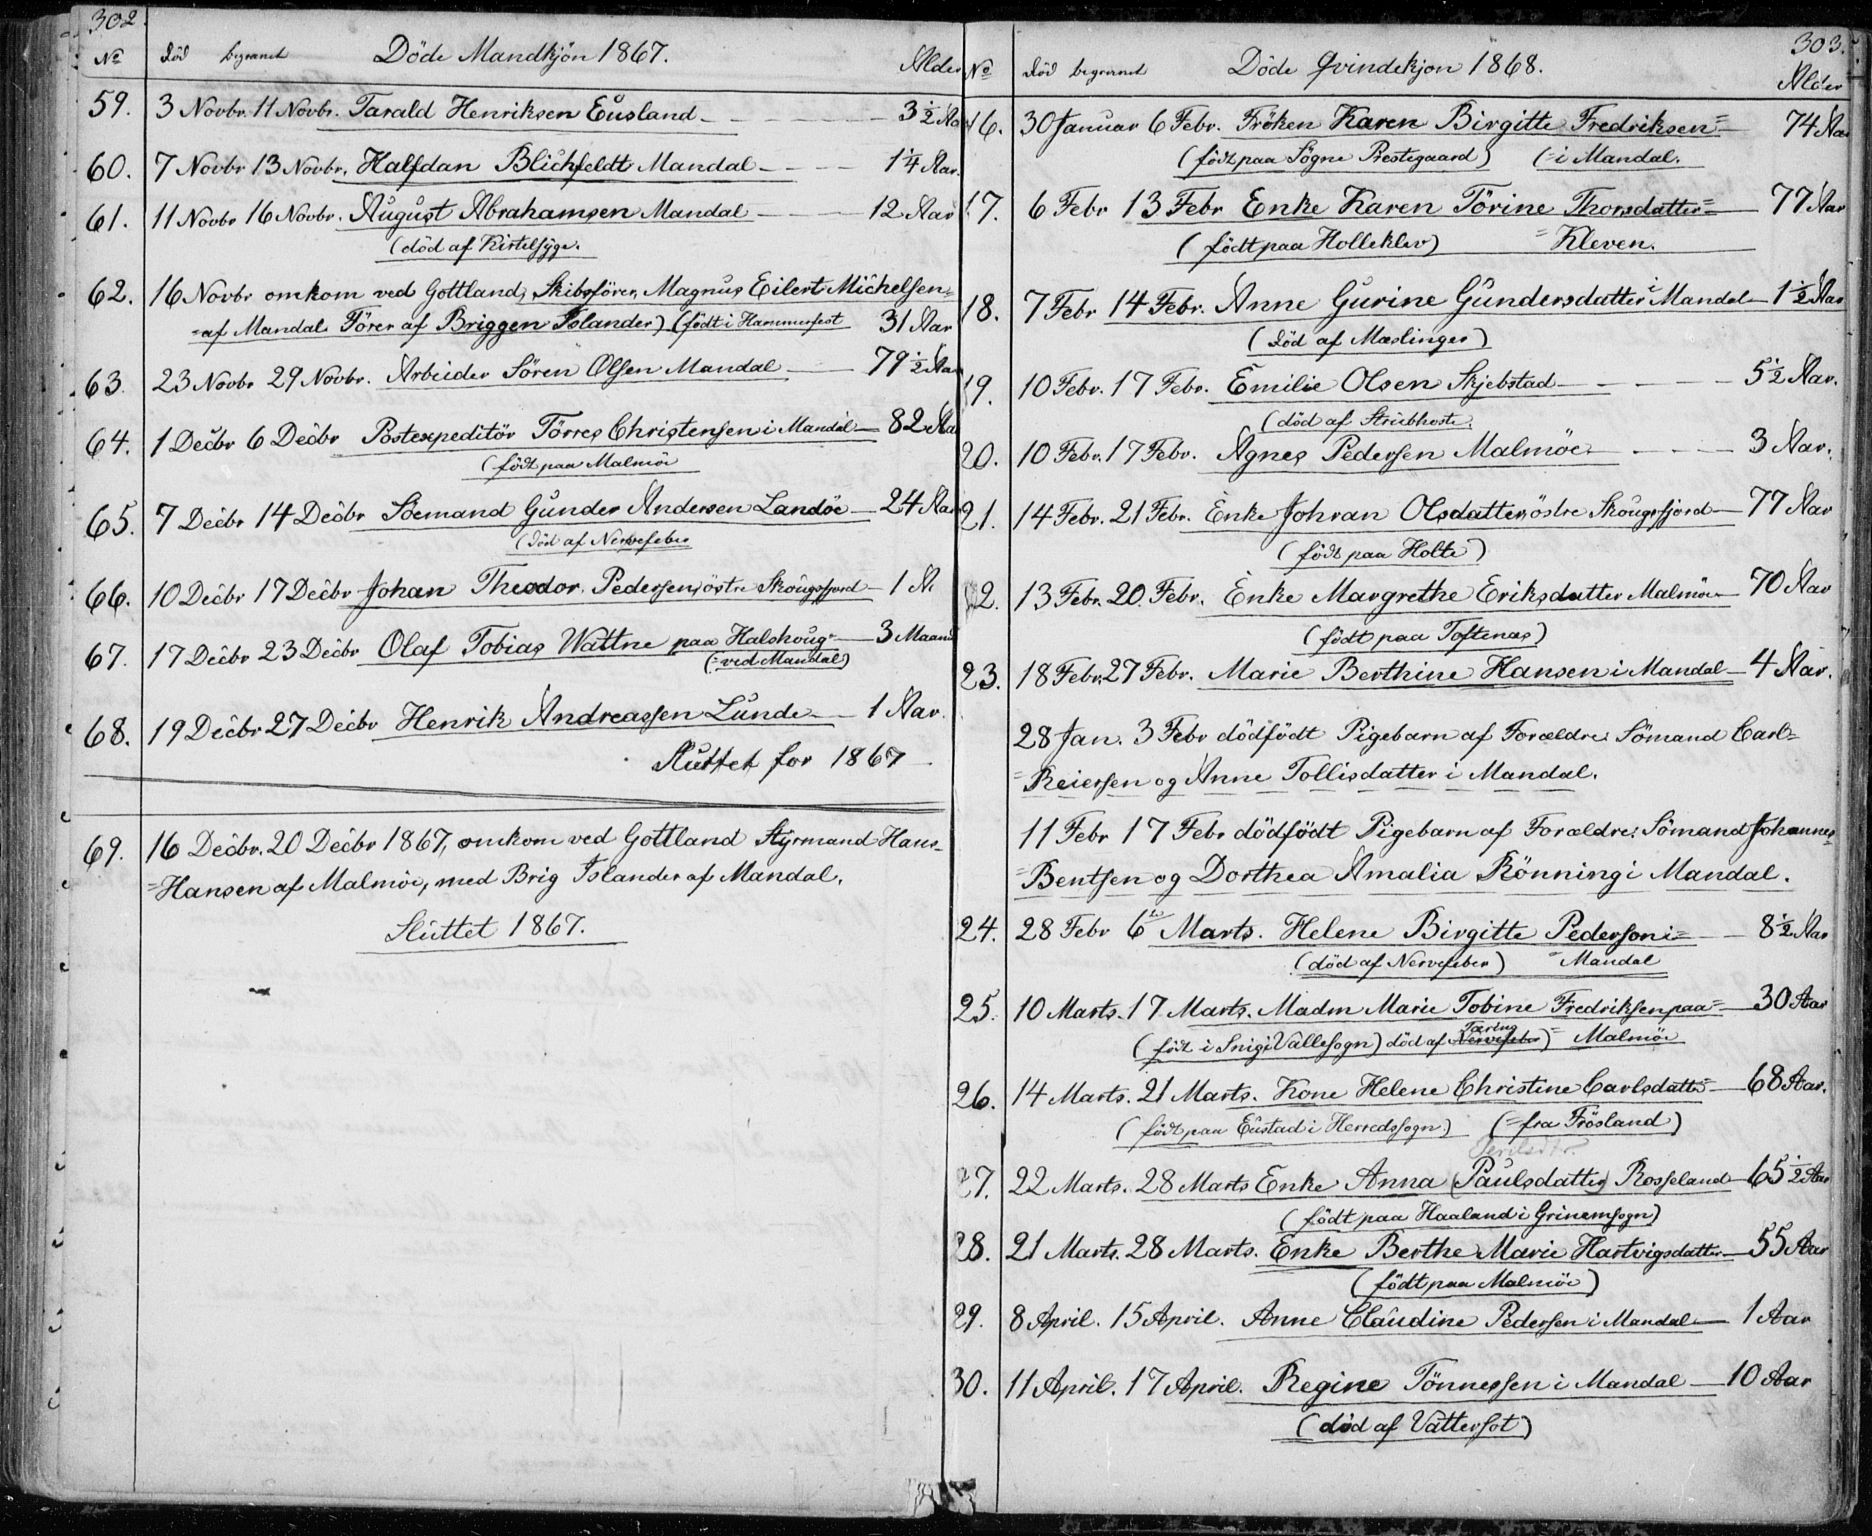 302.
No Död begravet Döde Mandkjön 1867. Alder
59. 3 Novbr. 11 Novbr. Tarald Henriksen Eusland 3 1/2 Aa
60. 7 Novbr 13 Novbr. Halfdan Blichfeldt Mandal 1 1/4 Aar.
61. 11 Novbr 16 Novbr. August Abrahamsen Mandal 12 Aar
(död af Kirtelsyge.
62. 16 Novbr omkom ved Gottland, Skibsförer, Magnus Eilert Michelsen=
=af Mandal Förer af Briggen Islander) (födt i Hammerfest 31 Aar
63. 23 Novbr 29 Novbr. Arbeider Sören Olsen Mandal 79 1/2 Aar
64. 1 Decbr 6 Decbr Postexpeditör Törres Christensen i Mandal 82 Aa
(födt paa Malmöe
65. 7 Decbr 14 Decbr Sömand Gunder Andersen Landöe 24 Aar
(död af Nervefeber
66. 10 Decbr 17 Decbr Johan Theodor Pedersen, östre Skougsfjord 1 A.
67. 17 Decbr 23 Decbr Olaf Tobias Wattne paa Halshoug= 3 Maand
(=ved Mandal)
68. 19 Decbr 27 Decbr Henrik Andreassen Lunde 1 Aar.
Sluttet for 1867
69. 16 Decbr. 20 Decbr 1867, omkom ved Gottland Styrmand Hans=
=Hansen af Malmöe, med Brig Islander af Mandal.
Sluttet 1867.
303.
No Död begravet Döde Qvindekjon 1868. Alder
16. 30 Januar 6 Febr. Fröken Karen Birgitte Fredriksen= 74 Aa
(födt paa Sögne Prestegaard) (=i Mandal.
17. 6 Febr 13 Febr Enke Karen Törine Thorsdatter= 77 Aar
(födt paa Holleklev) =Kleven.
18. 7 Febr 14 Febr. Anne Gurine Gundersdatter i Mandal 1 1/2 Aar
(Död af Mæslinger)
19. 10 Febr. 17 Febr. Emilie Olsen Skjebstad 5 1/2 Aar.
(död af Strubhoste.
20. 10 Febr. 17 Febr. Agnes Pedersen Malmöe 3 Aar.
21. 14 Febr. 21 Febr. Enke Johran Olsdatter, östre Skougsfjord 77 Aar
(födt paa Holte)
22. 13 Febr. 20. Febr. Enke Margrethe Eriksdatter Malmöe 70 Aar
(födt paa Toftenæs)
23. 18 Febr. 27 Febr. Marie Berthine Hansen i Mandal 4 Aar.
28 Jan. 3 Febr dödfödt Pigebarn af Forældre Sömand Carl=
=Reiersen og Anne Tollisdatter i Mandal.
11 Febr 17 Febr dödfödt Pigebarn af Forældre: Sömand Johannes
=Bentsen og Dorthea Amalia Rönning i Mandal.
24. 28 Febr 6 Marts. Helene Birgitte Pedersen i= 8 1/2 Aar
(död af Nervefeber) =Mandal
25. 10 Marts. 17 Marts. Madm Marie Tobine Fredriksen paa= 30 Aar
(födt i Snig i Vallesogn) död af Nervefeber Tæring) =Malmöe
26. 14 Marts. 21 Marts. Kone Helene Christine Carlsdatter= 68 Aar.
(födt paa Eustad i Herredssogn) (=fra Frösland)
27. 22 Marts. 28 Marts Enke Anna (Paulsdatter) Rosseland 65 1/2 Aar
(födt paa Haaland i Grinemsogn)
28. 21 Marts. 28 Marts. Enke Berthe Marie Hartvigsdatter 55 Aar
(födt paa Malmöe)
29. 8 April. 15 April. Anne Claudine Pedersen i Mandal 1 Aar
30. 11 April. 17 April. Regine Tönnessen i Mandal 10 Aar
(död af Vattersot)